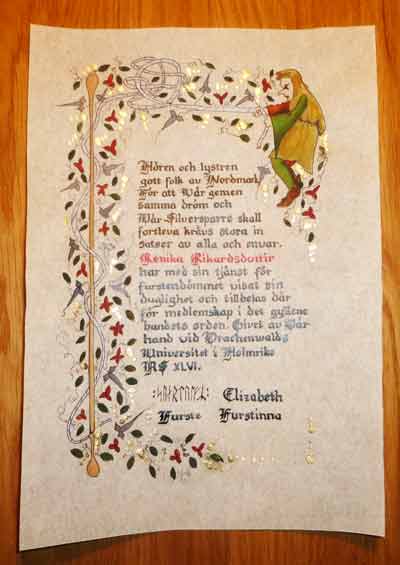 Hören och lystren
gott folk av Nordmark
För att Vår gemen
samma dröm och
Vår Silversparre skall
fortleva krävs stora in
satser av alla och envar.
Renika Rikardsdottir
har med sin tjänst för
furstendömmet visat sin
duglighet och tilldelas där
för medlemskap i det gyllene
bandets orden. Givet av Vår
hand vid Drachenwalds
Universitet i Holmrike
AS XLVI.
Elizabeth
Furste Furstinna